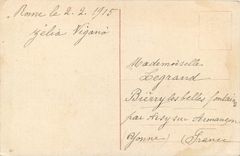 Rome le 2.2.1915
Zélia Viganò
Mademoiselle
Legrand
Bierry les belles fontaines
par Ancy sur Armançon
(Yonne) (France